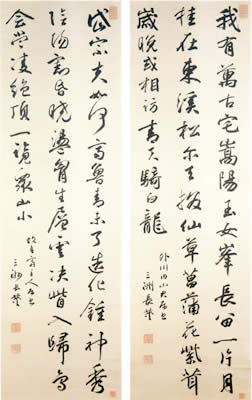 我有萬古宅嵩陽玉女峯長留一片月
挂在東溪松爾去掇仙草菖蒲花紫茸
歲晚或相訪青天騎白龍
三洲長炗
岱宗夫如何齊魯青未了造化鍾神秀
陰陽割昏曉盪胸生層雲決眥入歸鳥
會當凌絕頂一覽眾山小
三洲長炗